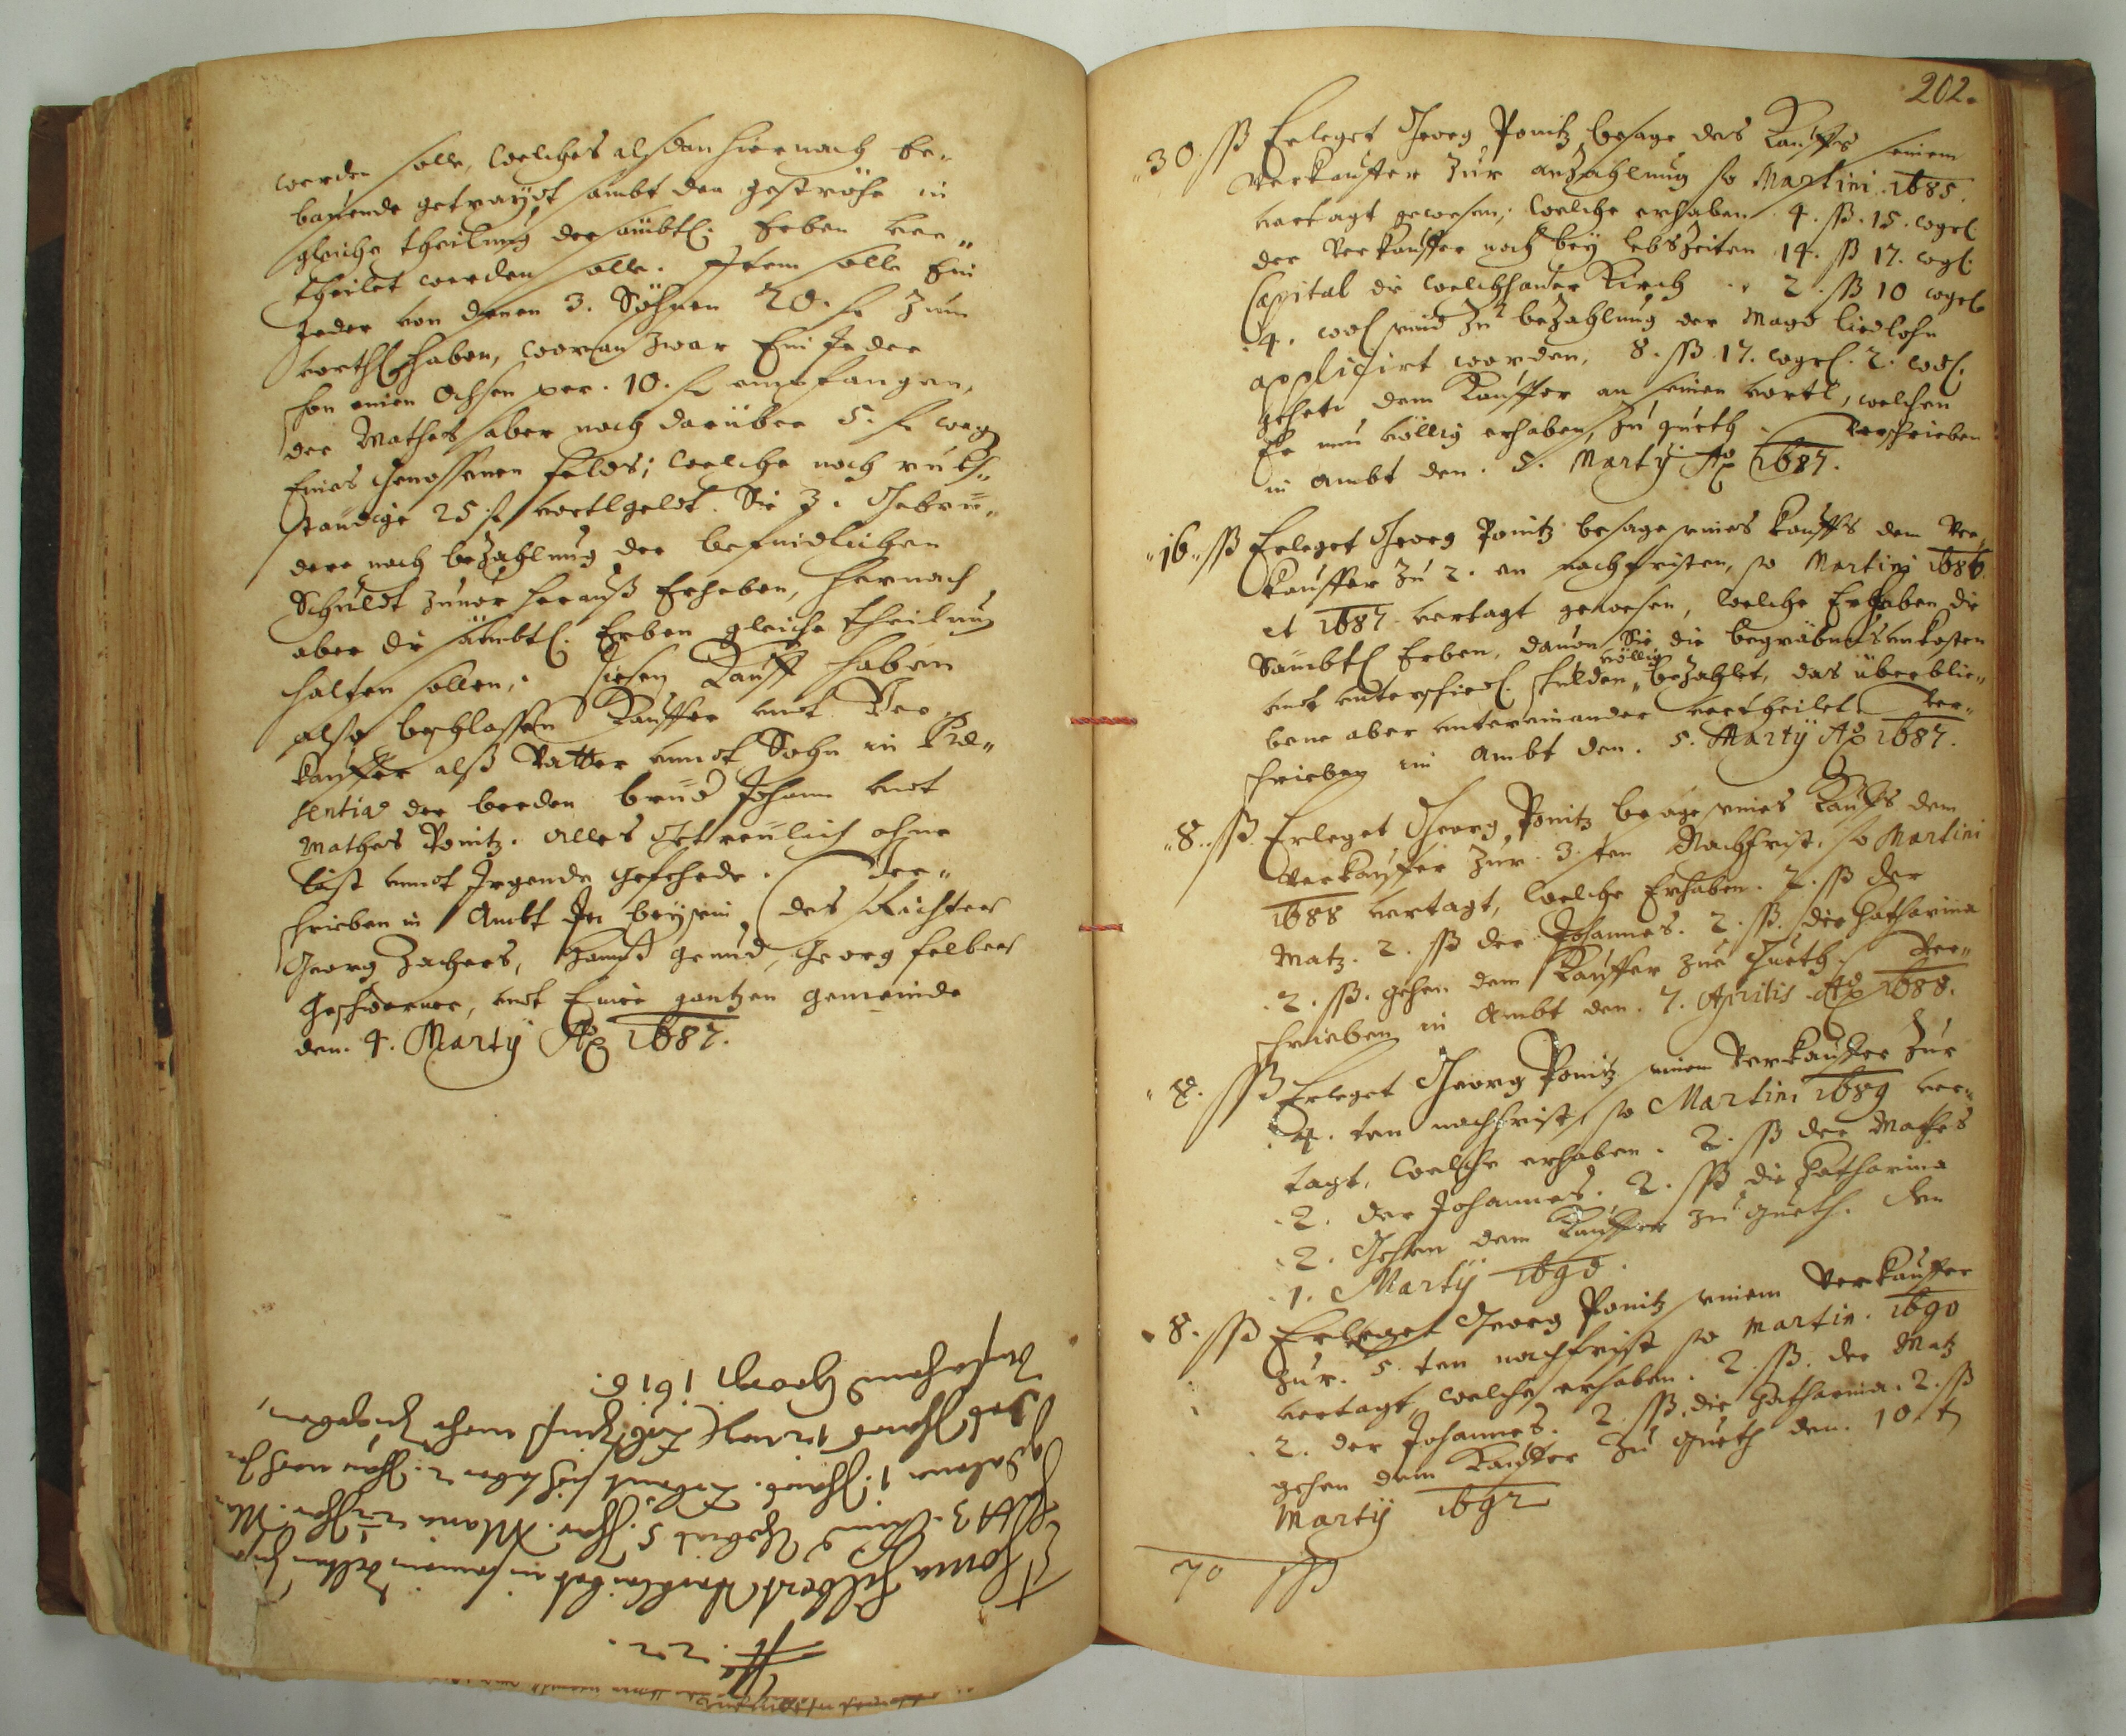 werden solle, welches alsdan hiernach be-
bauende getraydt sambt den geströhe in
gleiche theilung der sämbtl. Erben ver-
theilet werden solle. Item solle Ein
Jeder von denen 3. Söhnen 20. f. zum
vorthl haben, woran zwar Ein Jeder
schon einen Ochsen per. 10. f. empfangen,
der Mathes aber noch darüber 5. f. weg
Eines genossenen felds; welche noch ruckh-
ständige 25 f. vortlgeldt. Sie 3. Gebrü-
dere nach bezahlung der befindlichen
Schuldt zuvor herauß Erheben, hernach
aber die sämbtl. Erben gleiche theilung
halten sollen. diesen Kauff haben
also beschlossen Kauffer undt Ver-
kauffer alß Vatter unndt Sohn in Præ-
sentia der beeden brüd Johann undt
Mathes Ponitz. Alles Getreulich ohne
list unndt Irgende gefehrde. Ver-
schrieben in Ambt In beysein des Richters
Georg Zachers, gemd, Georg felbers
Geschworner, undt Einer gantzen gemeinde
den. 4. Martÿ Aō 1687.
No. 22.
Thoma Hilbert
hat 3. Kind 5. Jhar. Maria Jhar. Ma-
dalena 1. Jhar.
1616.
202.
30. ßß Erleget Georg Ponitz besage des Kauffs seinem
Verkauffer zur anzahlung so Martini 1685.
vertagt gewesen, welche erhaben. 4. ßß. 15. wgrl.
der Verkauffer noch bey lebszeiten 14. ßß 17. wgl.
Capital die Kirch .. 2. ßß 10 wgrl
4. wd sind zu bezahlung der Magd liedlohn
applicirt worden, 8. ßß. 17. wgrl. 2. wd.
gehete dem Kauffer an seinen vortl, welchen
Er nun völlig erhaben, zu gueth. Verschrieben
in Ambt den. 5. Martÿ Aō 1687.
16. ßß Erleget Georg Ponitz besage seines Kauffs dem Ver-
kauffer zu 2. en nachfristen, so Martini 1686
et 1687 vertagt gewesen, welche Erhaben die
Sämbtl Erben, davon Sie die begräbnus unkosten
undt unterschiedl. schulden völlig bezahlet, das überblie-
bene aber untereinander vertheilet. Ver-
schrieben im Ambt den. 5. Martÿ Aō 1687.
8. ßß. Erleget Georg Ponitz besage seines Kauffs dem
Verkauffer zur. 3. ten Nachfrist, so Martini
1688 vertagt, welche Erhaben. 2. ßß der
Matz. 2. ßß der Johannes. 2. ßß. die Catharina
2. ßß. gehen dem Kauffer zue Gueth. Ver-
schrieben in Ambt den. 7. Aprilis Aō 1688.
8. ßß Erleget Georg Ponitz seinem Verkauffer zur
4. ten nachfrist, so Martini 1689 ver-
tagt, welche erhaben. 2. ßß der Mathes
2. der Johannes. 2. ßß die Catharina
2. Gehen dem Kauffer zu gueth. den
1. Martÿ 1690.
8. ßß Erleget Georg Ponitz seinem Verkauffer
zur. 5. ten nachfrist so Martin. 1690
vertagt, welche erhaben. 2. ßß. der Matz
2. der Johannes. 2 ßß. die Catharina. 2. ßß
gehen dem Kauffer zu gueth den. 10 t
Martÿ 1692
70 ßß